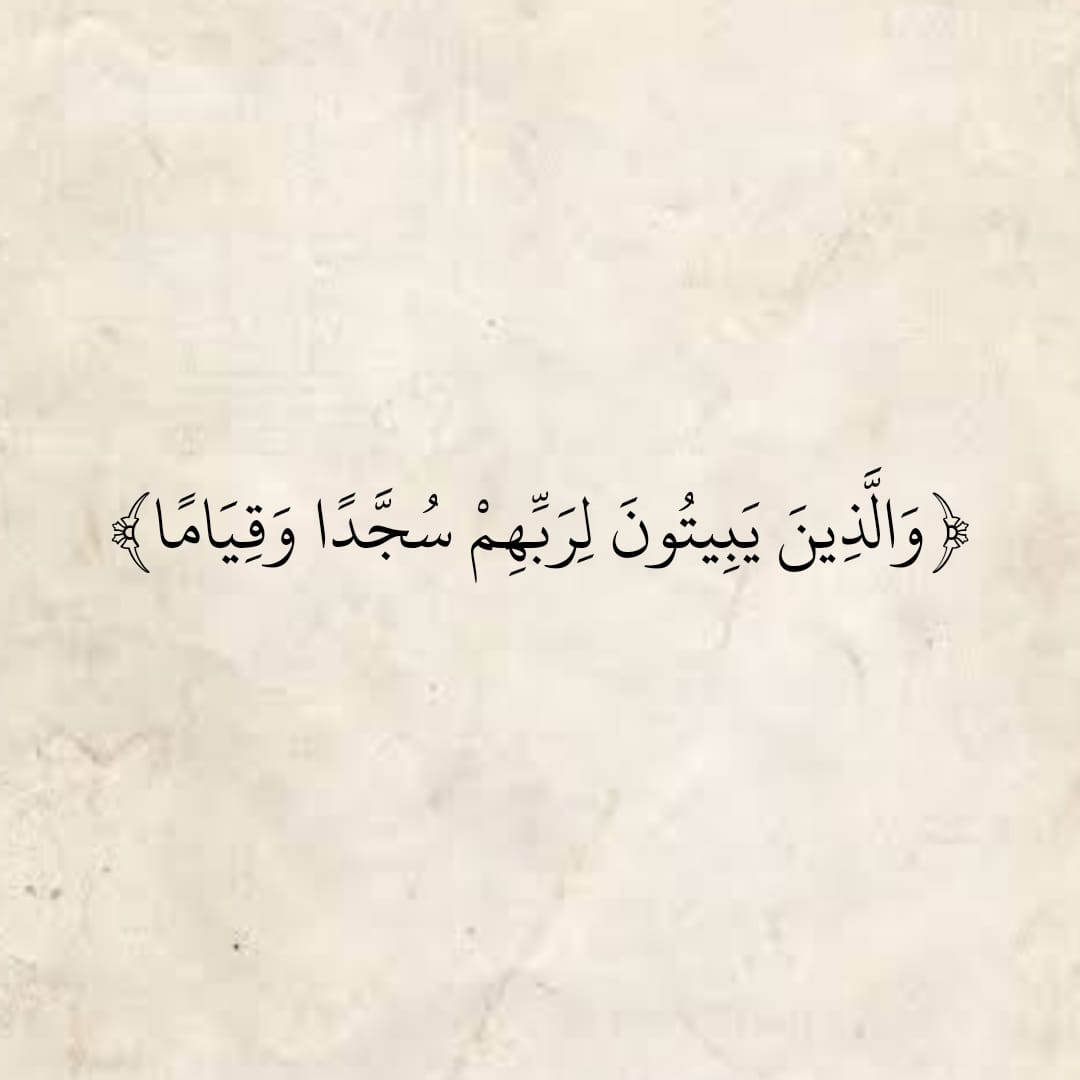 ﴿وَالَّذِينَ يَبِيتُونَ لِرَبِّهِمْ سُجَّدًا وَقِيَامًا﴾